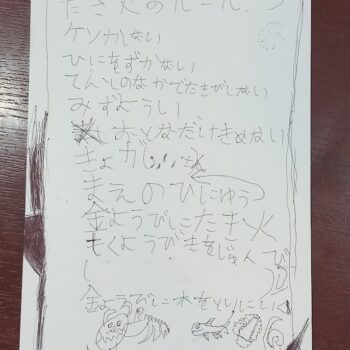 たき火のルール
ケンカしない
ひにをずかない
てんとのなかでたきびしない
みずようい
おとなだけきめない
まえのひにゅう
金ようびにたき火
もくようびきをじゅんび
し
金ようびに木をといにいく